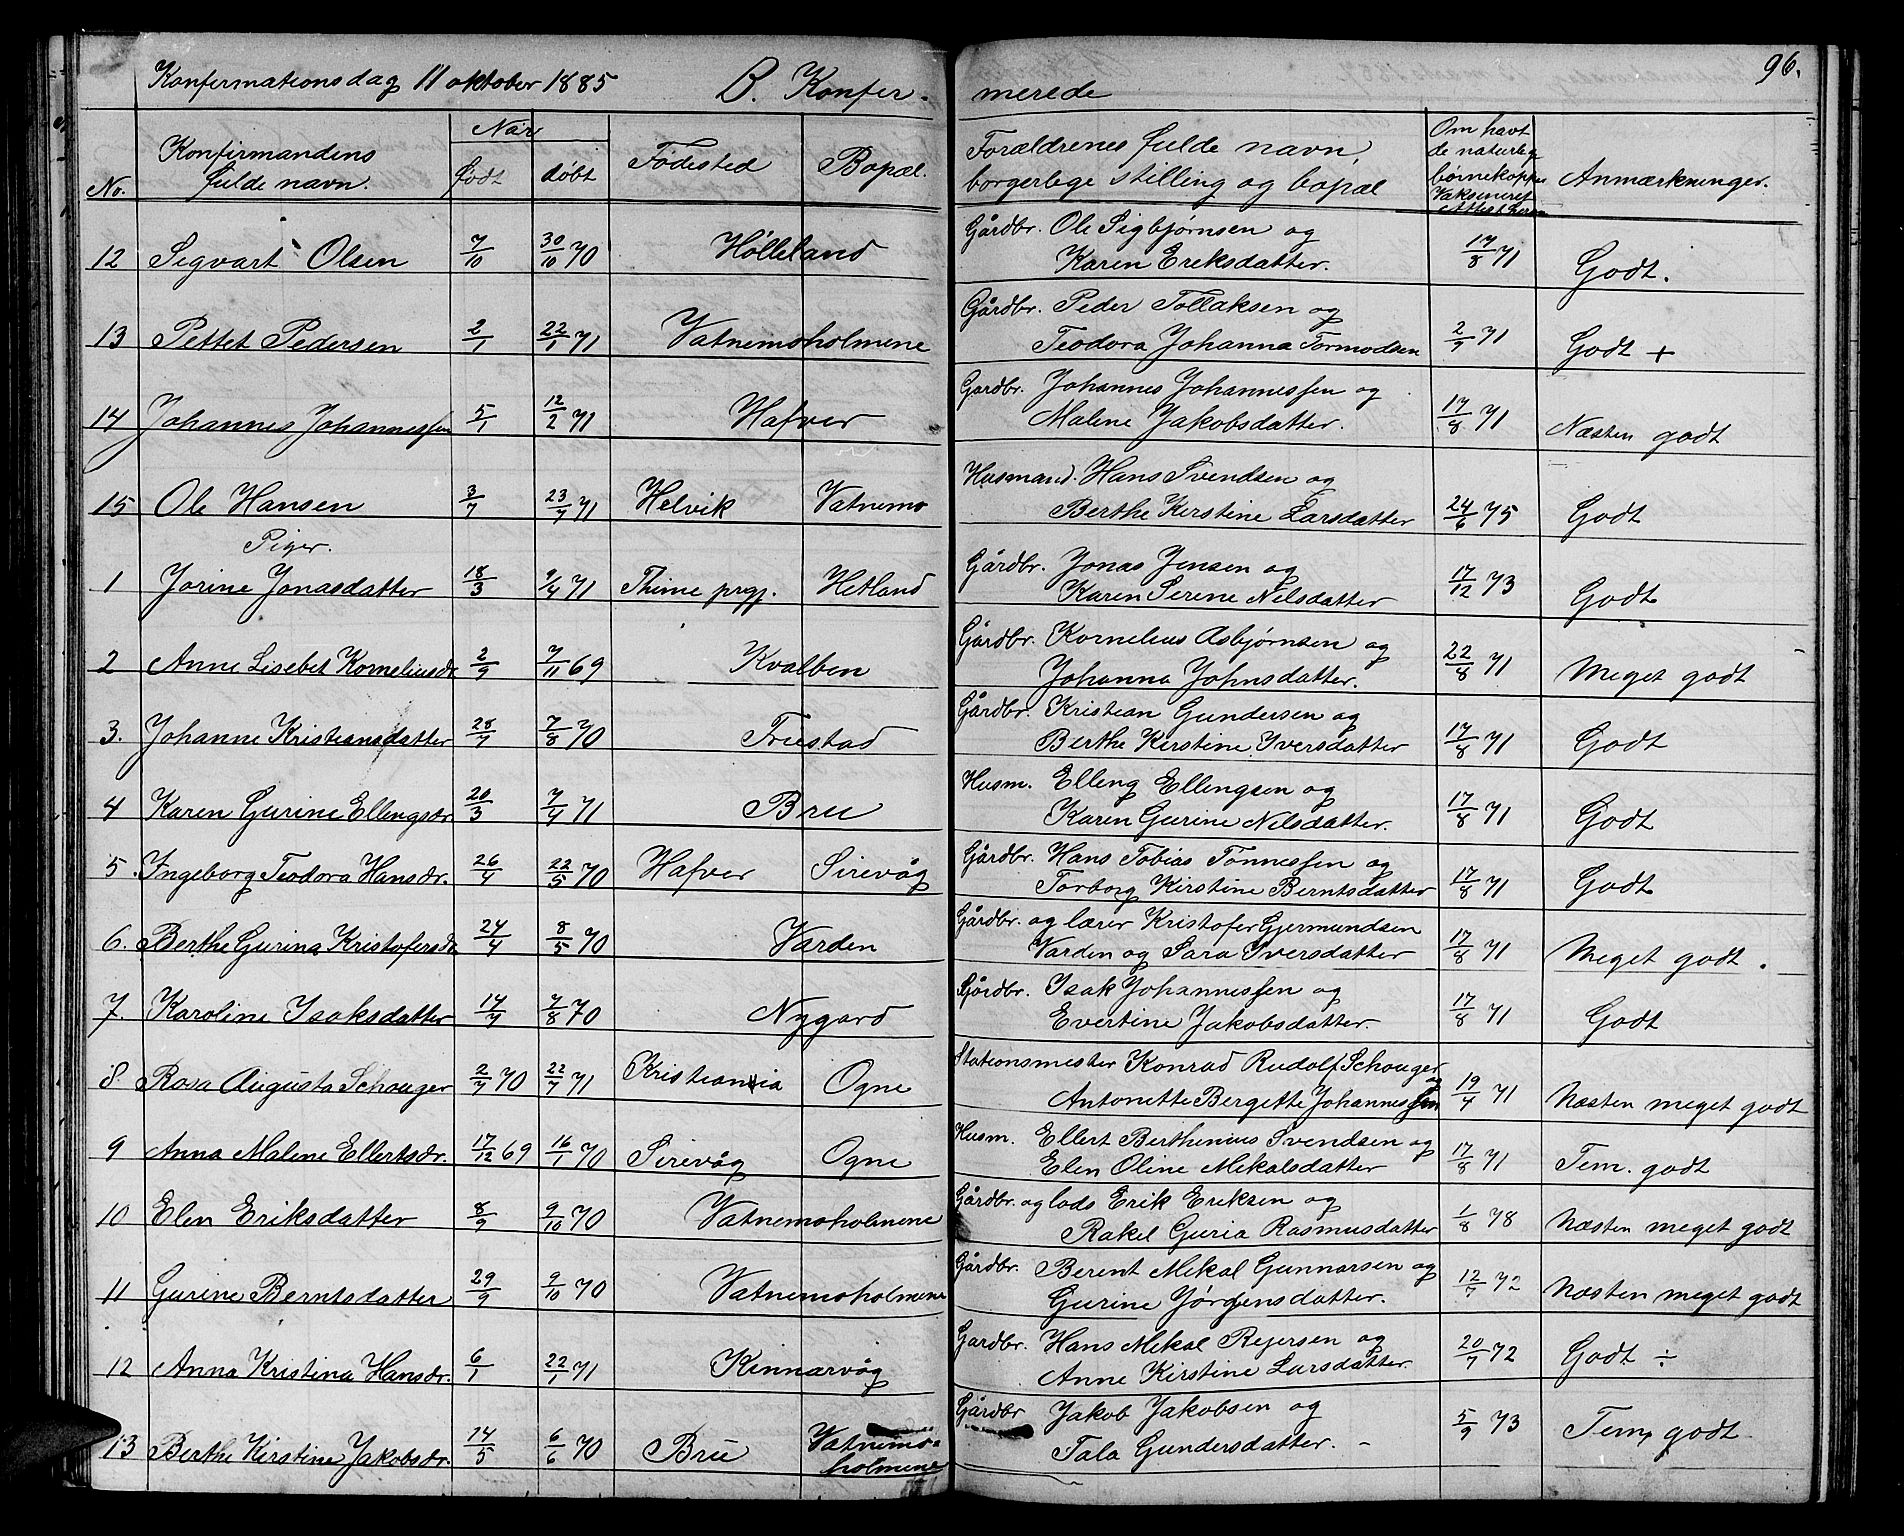 Konfirmationsdag 11 oktober 1885 B. Konfir- merede 96.
No. Konfirmandens fulde navn. Når født døbt Fødested Bopæl. Forældrenes fulde navn, borgerlege stilling og bopæl Om havt de naturlege børnekopper Vaksineret Attest Anmærkninger.
12 Sigvart Olsen 7/10 30/10 70 Hølleland Gårdbr. Ole Sigbjørnsen og
Karen Eriksdatter. 17/8 71 Godt.
13 Pettet Pedersen 2/1 22/1 71 Vatnemoholmene Gårdbr. Peder Tollaksen og
Teodora Johanna Tormodsen 2/9 71 Godt +
14 Johannes Johannessen 5/1 12/2 71 Hafver Gardbr. Johannes Johannessen og
Malene Jakobsdatter. 17/8 71 Næsten godt
15 Ole Hansen 3/7 23/7 71 Helvik Vatnemo Husmand. Hans Svendsen og
Berthe Kirstine Larsdatter 24/6 75 Godt
Piger.
1 Jorine Jonasdatter 18/3 9/4 71 Thime prgj. Hetland Gårdbr. Jonas Jensen og
Karen Serene Nilsdatter 17/12 73 Godt
2 Anne Lisebet Korneliusdr. 2/9 7/11 69 Kvalben Gårdbr. Kornelius Asbjørnsen og
Johanna Johnsdatter. 22/8 71 Meget godt
3. Johanne Kristiansdatter 28/7 7/8 70 Truestad Gårdbr. Kristian Gundersen og
Berthe Kirstine Iversdatter 17/8 71 Godt
4 Karen Gurine Ellingsdr. 20/3 7/4 71 Bru Husm. Elling Ellingsen og
Karen Gurine Nilsdatter. 17/8 71 Godt
5. Ingeborg Teodora Hansdr. 26/4 22/5 70 Hafver Sirevåg Gårdbr. Hans Tobias Tønnessen og
Torborg Kirstine Berntsdatter 17/8 71 Godt
6. Berthe Gurina Kristofersdr 24/4 8/5 70 Varden Gårdbr. og lærer Kristofer Gjermundsen
Varden og Sara Iversdatter 17/8 71 Meget godt.
7. Karoline Isaksdatter 14/7 7/8 70 Nygard Gårdbr. Isak Johannessen og
Evertine Jakobsdatter. 17/8 71 Godt
8. Rosa Augusta Schouger 2/7 70 22/7 71 Kristiania Ogne Stationsmester Konrad Rudolf Schouger og
Antonette Bergette Johannessen 19/4 71 Næsten meget godt
9 Anna Malene Ellertsdr. 17/12 69 16/1 70 Sirevåg Ogne Husm. Ellert Berthinius Svendsen og
Elen Oline Mikalsdatter 17/8 71 Tem. godt
10 Elen Eriksdatter 8/9 9/10 70 Vatnemoholmene Gårdbr. og lods Erik Eriksen og
Rakel Guria Rasmusdatter 1/8 78 Næsten meget godt
11 Gurine Berntsdatter 29/9 9/10 70 Vatnemoholmene Gårdbr. Berent Mikal Gunnarsen og
Gurine Jørgensdatter. 12/7 72 Næsten meget godt
12 Anna Kristina Hansdr. 6/1 22/1 71 Kinnarvåg Gardbr. Hans Mikal Rejersen og
Anne Kirstine Larsdatter. 20/7 72 Godt ÷
13 Berthe Kirstine Jakobsdr. 14/5 6/6 70 Bru Vatnemo-holmene Gårdbr Jakob Jakobsen og
Tala Gundersdatter. - 5/9 73 Tem. godt